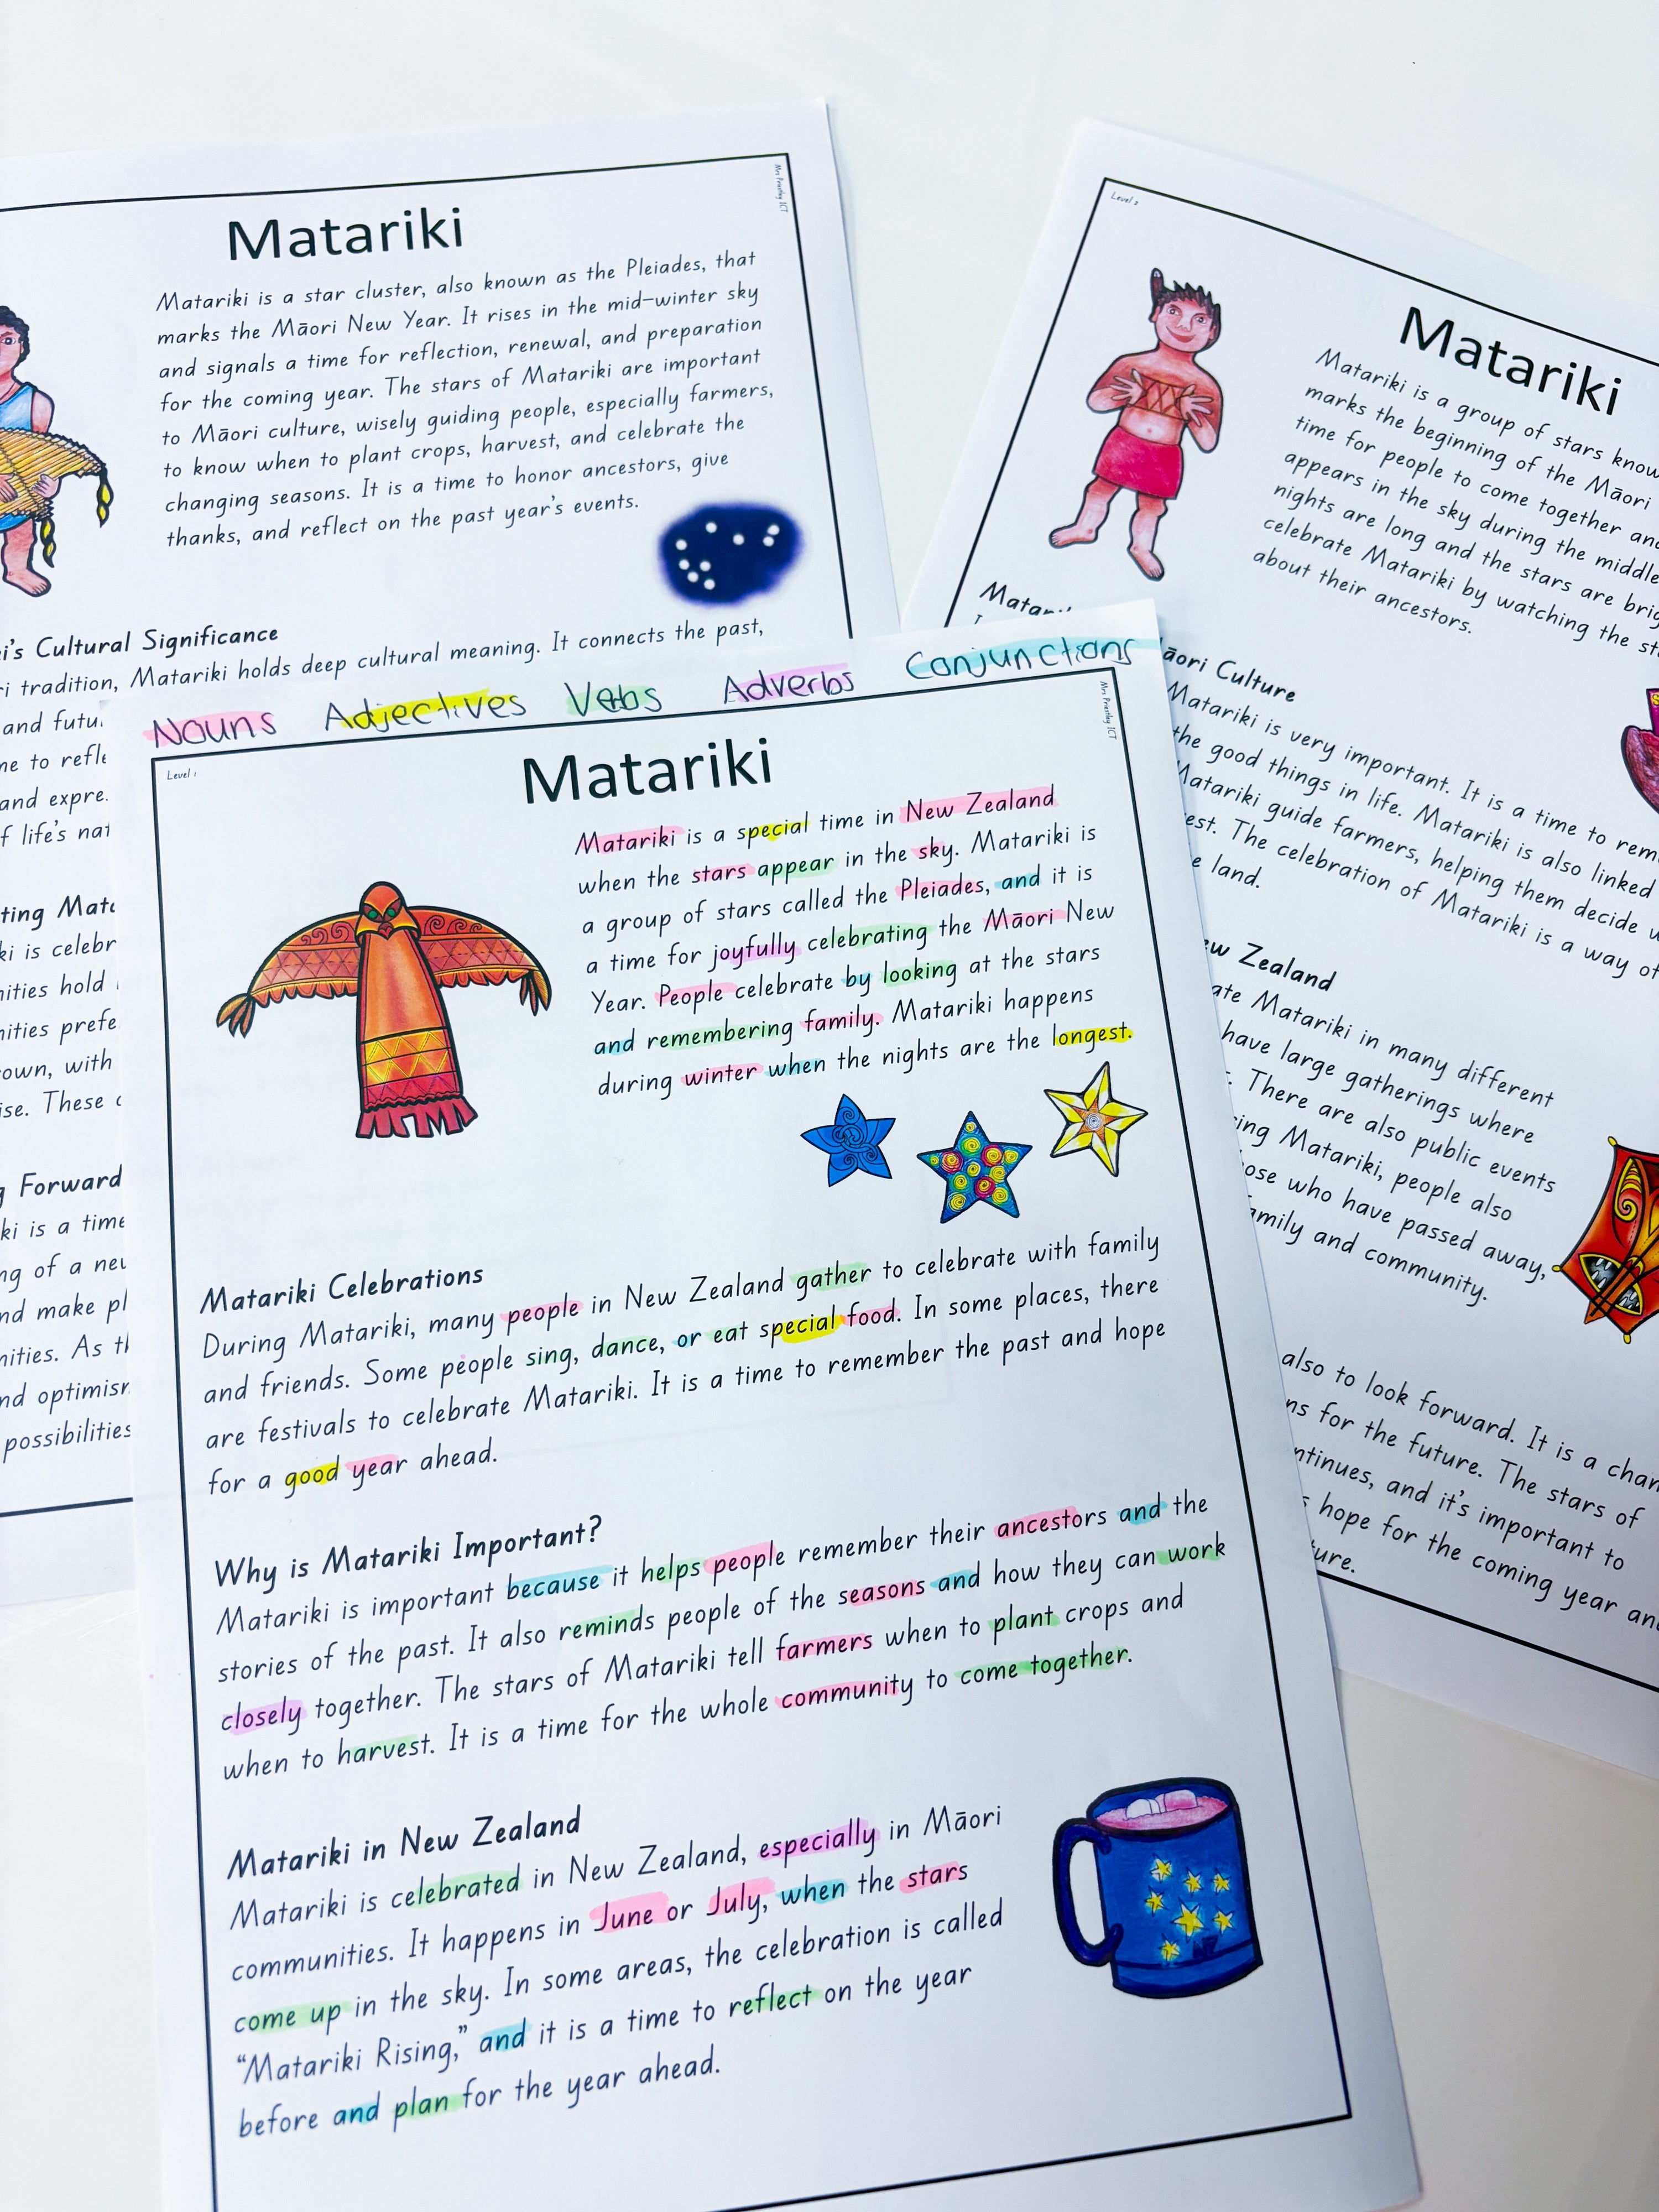 Mrs Priestley ICT
Matariki
Matariki is a star cluster, also known as the Pleiades, that
marks the Māori New Year. It rises in the mid-winter sky
and signals a time for reflection, renewal, and preparation
for the coming year. The stars of Matariki are important
to Māori culture, wisely guiding people, especially farmers,
to know when to plant crops, harvest, and celebrate the
changing seasons. It is a time to honor ancestors, give
thanks, and reflect on the past year's events.
Cultural Significance
tradition, Matariki holds deep cultural meaning. It connects the past,
and
to
and
life's
is
hold
with
These
Forward
is a time
of a
make
As
possibilities
Level 2
Matariki
Matariki is a group of stars
marks the beginning of the Māori
time for people to come together
appears in the sky during the middle
nights are long and the stars are
celebrate Matariki by watching the
about their ancestors.
Culture
Matariki is very important. It is a time to
the good things in life. Matariki is also linked
Matariki guide farmers, helping them decide
The celebration of Matariki is a way of
land.
Zealand
Matariki in many different
have large gatherings where
There are also public events
Matariki, people also
who have passed away,
and community.
also to look forward. It is a
for the future. The stars of
and it's important to
hope for the coming year
Nouns Adjectives Verbs Adverbs Conjunctions
Level 1
Mrs Priestley ICT
Matariki
Matariki is a special time in New Zealand
when the stars appear in the sky. Matariki is
a group of stars called the Pleiades, and it is
a time for joyfully celebrating the Māori New
Year. People celebrate by looking at the stars
and remembering family. Matariki happens
during winter when the nights are the longest.
Matariki Celebrations
During Matariki, many people in New Zealand gather to celebrate with family
and friends. Some people sing, dance, or eat special food. In some places, there
are festivals to celebrate Matariki. It is a time to remember the past and hope
for a good year ahead.
Why is Matariki Important?
Matariki is important because it helps people remember their ancestors and the
stories of the past. It also reminds people of the seasons and how they can work
closely together. The stars of Matariki tell farmers when to plant crops and
when to harvest. It is a time for the whole community to come together.
Matariki in New Zealand
Matariki is celebrated in New Zealand, especially in Māori
communities. It happens in June or July, when the stars
come up in the sky. In some areas, the celebration is called
“Matariki Rising,” and it is a time to reflect on the year
before and plan for the year ahead.